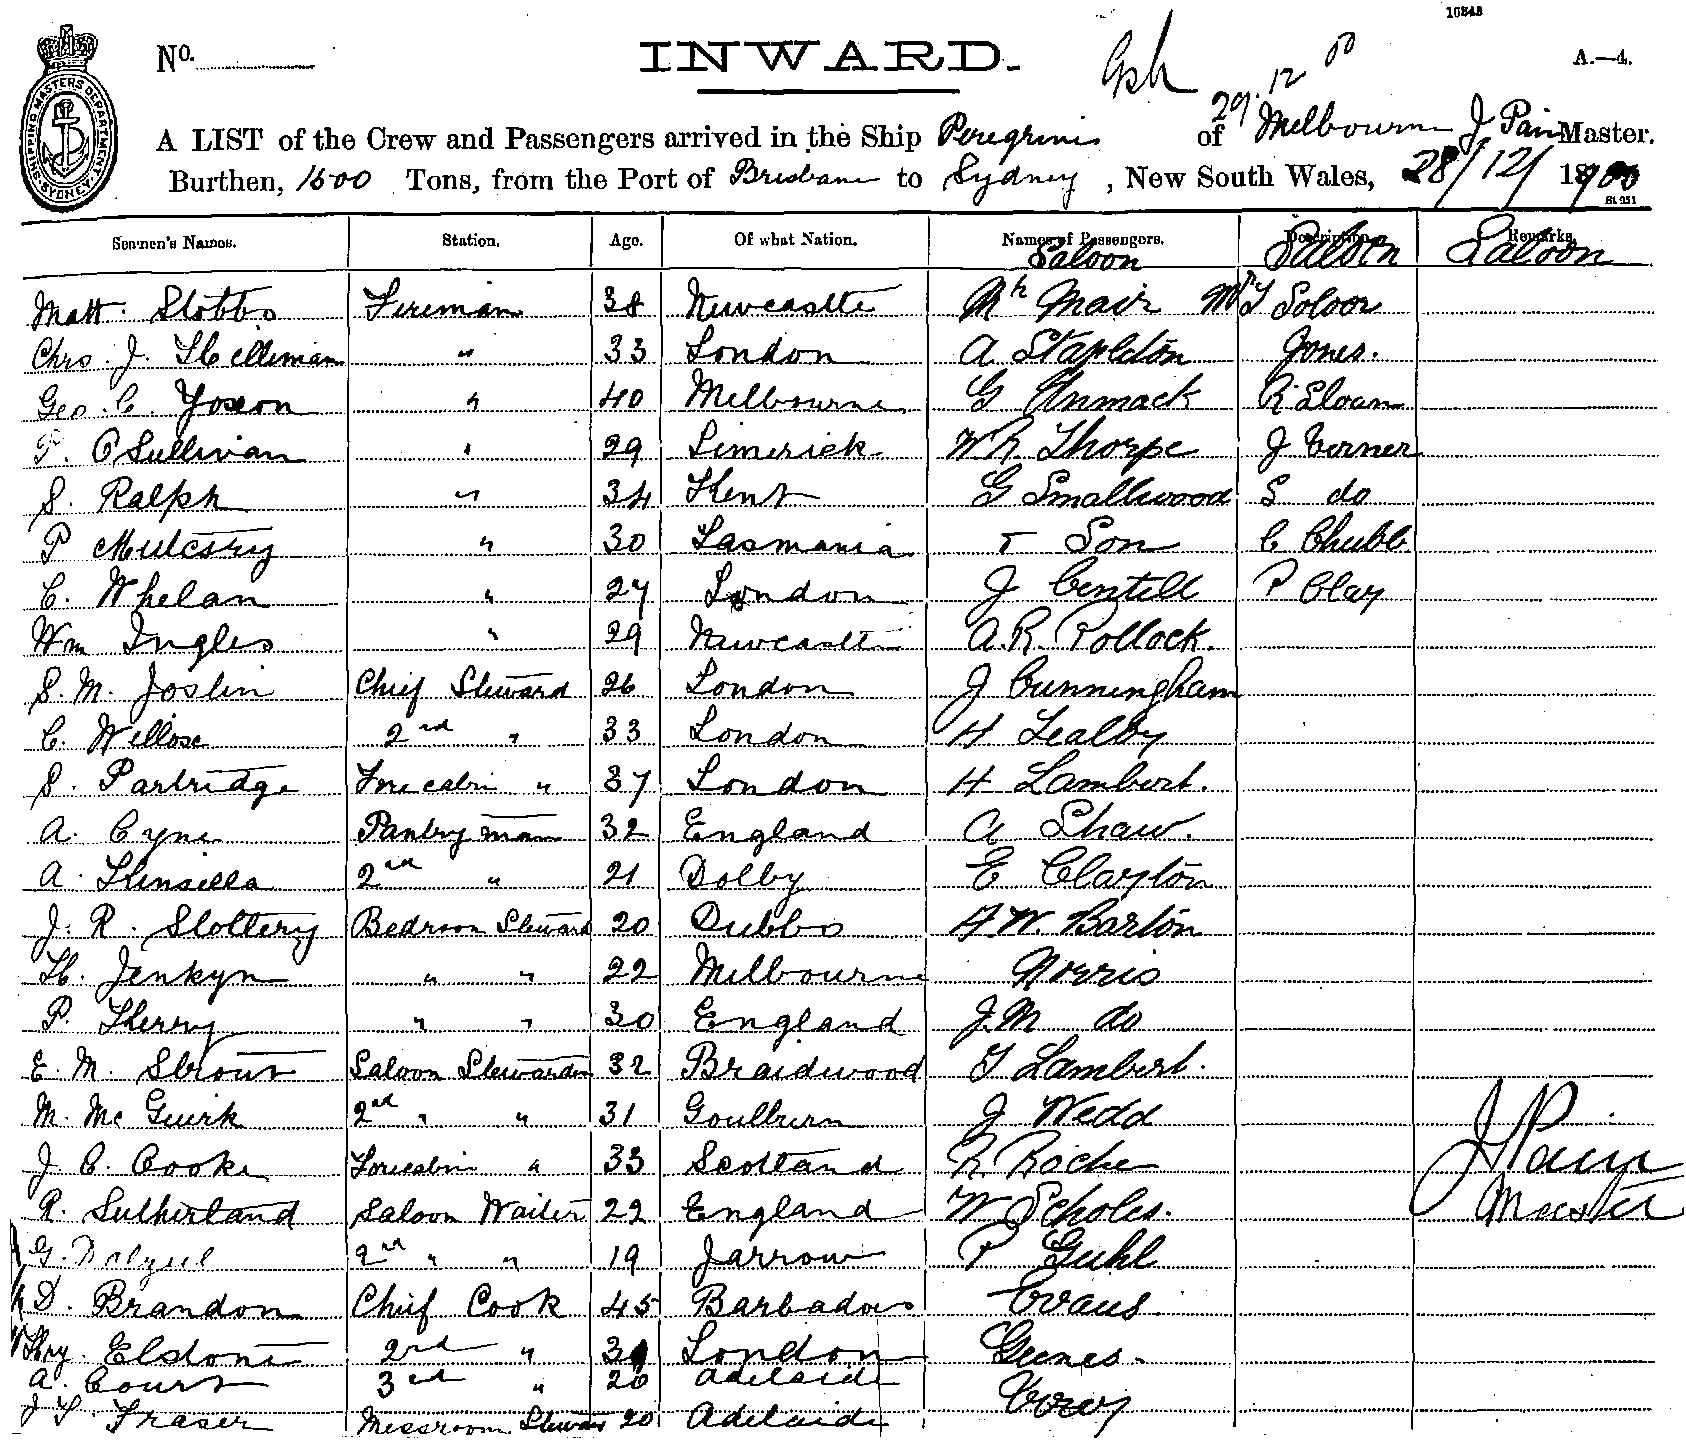 10243
No.
INWARD.
A.—4.
29.12.00
A LIST of the Crew and Passengers arrived in the Ship Peregrine of Melbourne J Pain Master.
Burthen, 1600 Tons, from the Port of Brisbane to Sydney, New South Wales, 28/12/1900
SHIPPING MASTERS DEPARTMENT SYDNEY
Seamen's Names. Station. Age. Of what Nation. Names of Passengers. Description. Remarks.
Saloon Saloon Saloon
Matt. Stobbs Fireman 38 Newcastle Mr Mair
Chrs. J. Helliman " 33 London A Stapleton Jones.
Geo. C. Yoxon " 40 Melbourne G R Sloan
T. O Sullivan " 29 Limerick W R Thorpe J Verner
S. Ralph " 34 Kent G Smallwood S do
P " 30 Tasmania + Son C Chubb
C. Whelan " 27 London J P Clay
Wm Ingles " 29 Newcastle A.R. Pollock.
S. M. Joslin Chief Steward 26 London J Cunningham
C. Willox 2nd " 33 London H Lealby
S. Partridge Forecabin " 37 London H Lambert.
A. Cyne Pantry man 32 England A Shaw.
A. Kinsella 2nd " 21 Dolby E Clayton
J. R. Slottery Bedroom Steward 20 Dubbo A W. Barton
H. Jenkyn " " 22 Melbourne Norris
P. Kerry " " 30 England J.M do
E. M. Strout Saloon Stewardess 32 Braidwood T Lambert.
M. Mc Guirk 2nd " " 31 Goulburn J Wedd
J. C. Cooke Forecabin " 33 Scotland R Roche
R. Sutherland Saloon Waiter 22 England W Scholes.
G. Dalziel 2nd " " 19 Jarrow P Guhl
D. Brandon Chief Cook 45 Barbados Evans.
Hry. Elstone 2nd " London
A. Court 3rd " 20 Adelaide
J T Fraser Messroom Steward 20 Adelaide
J Pain
Master